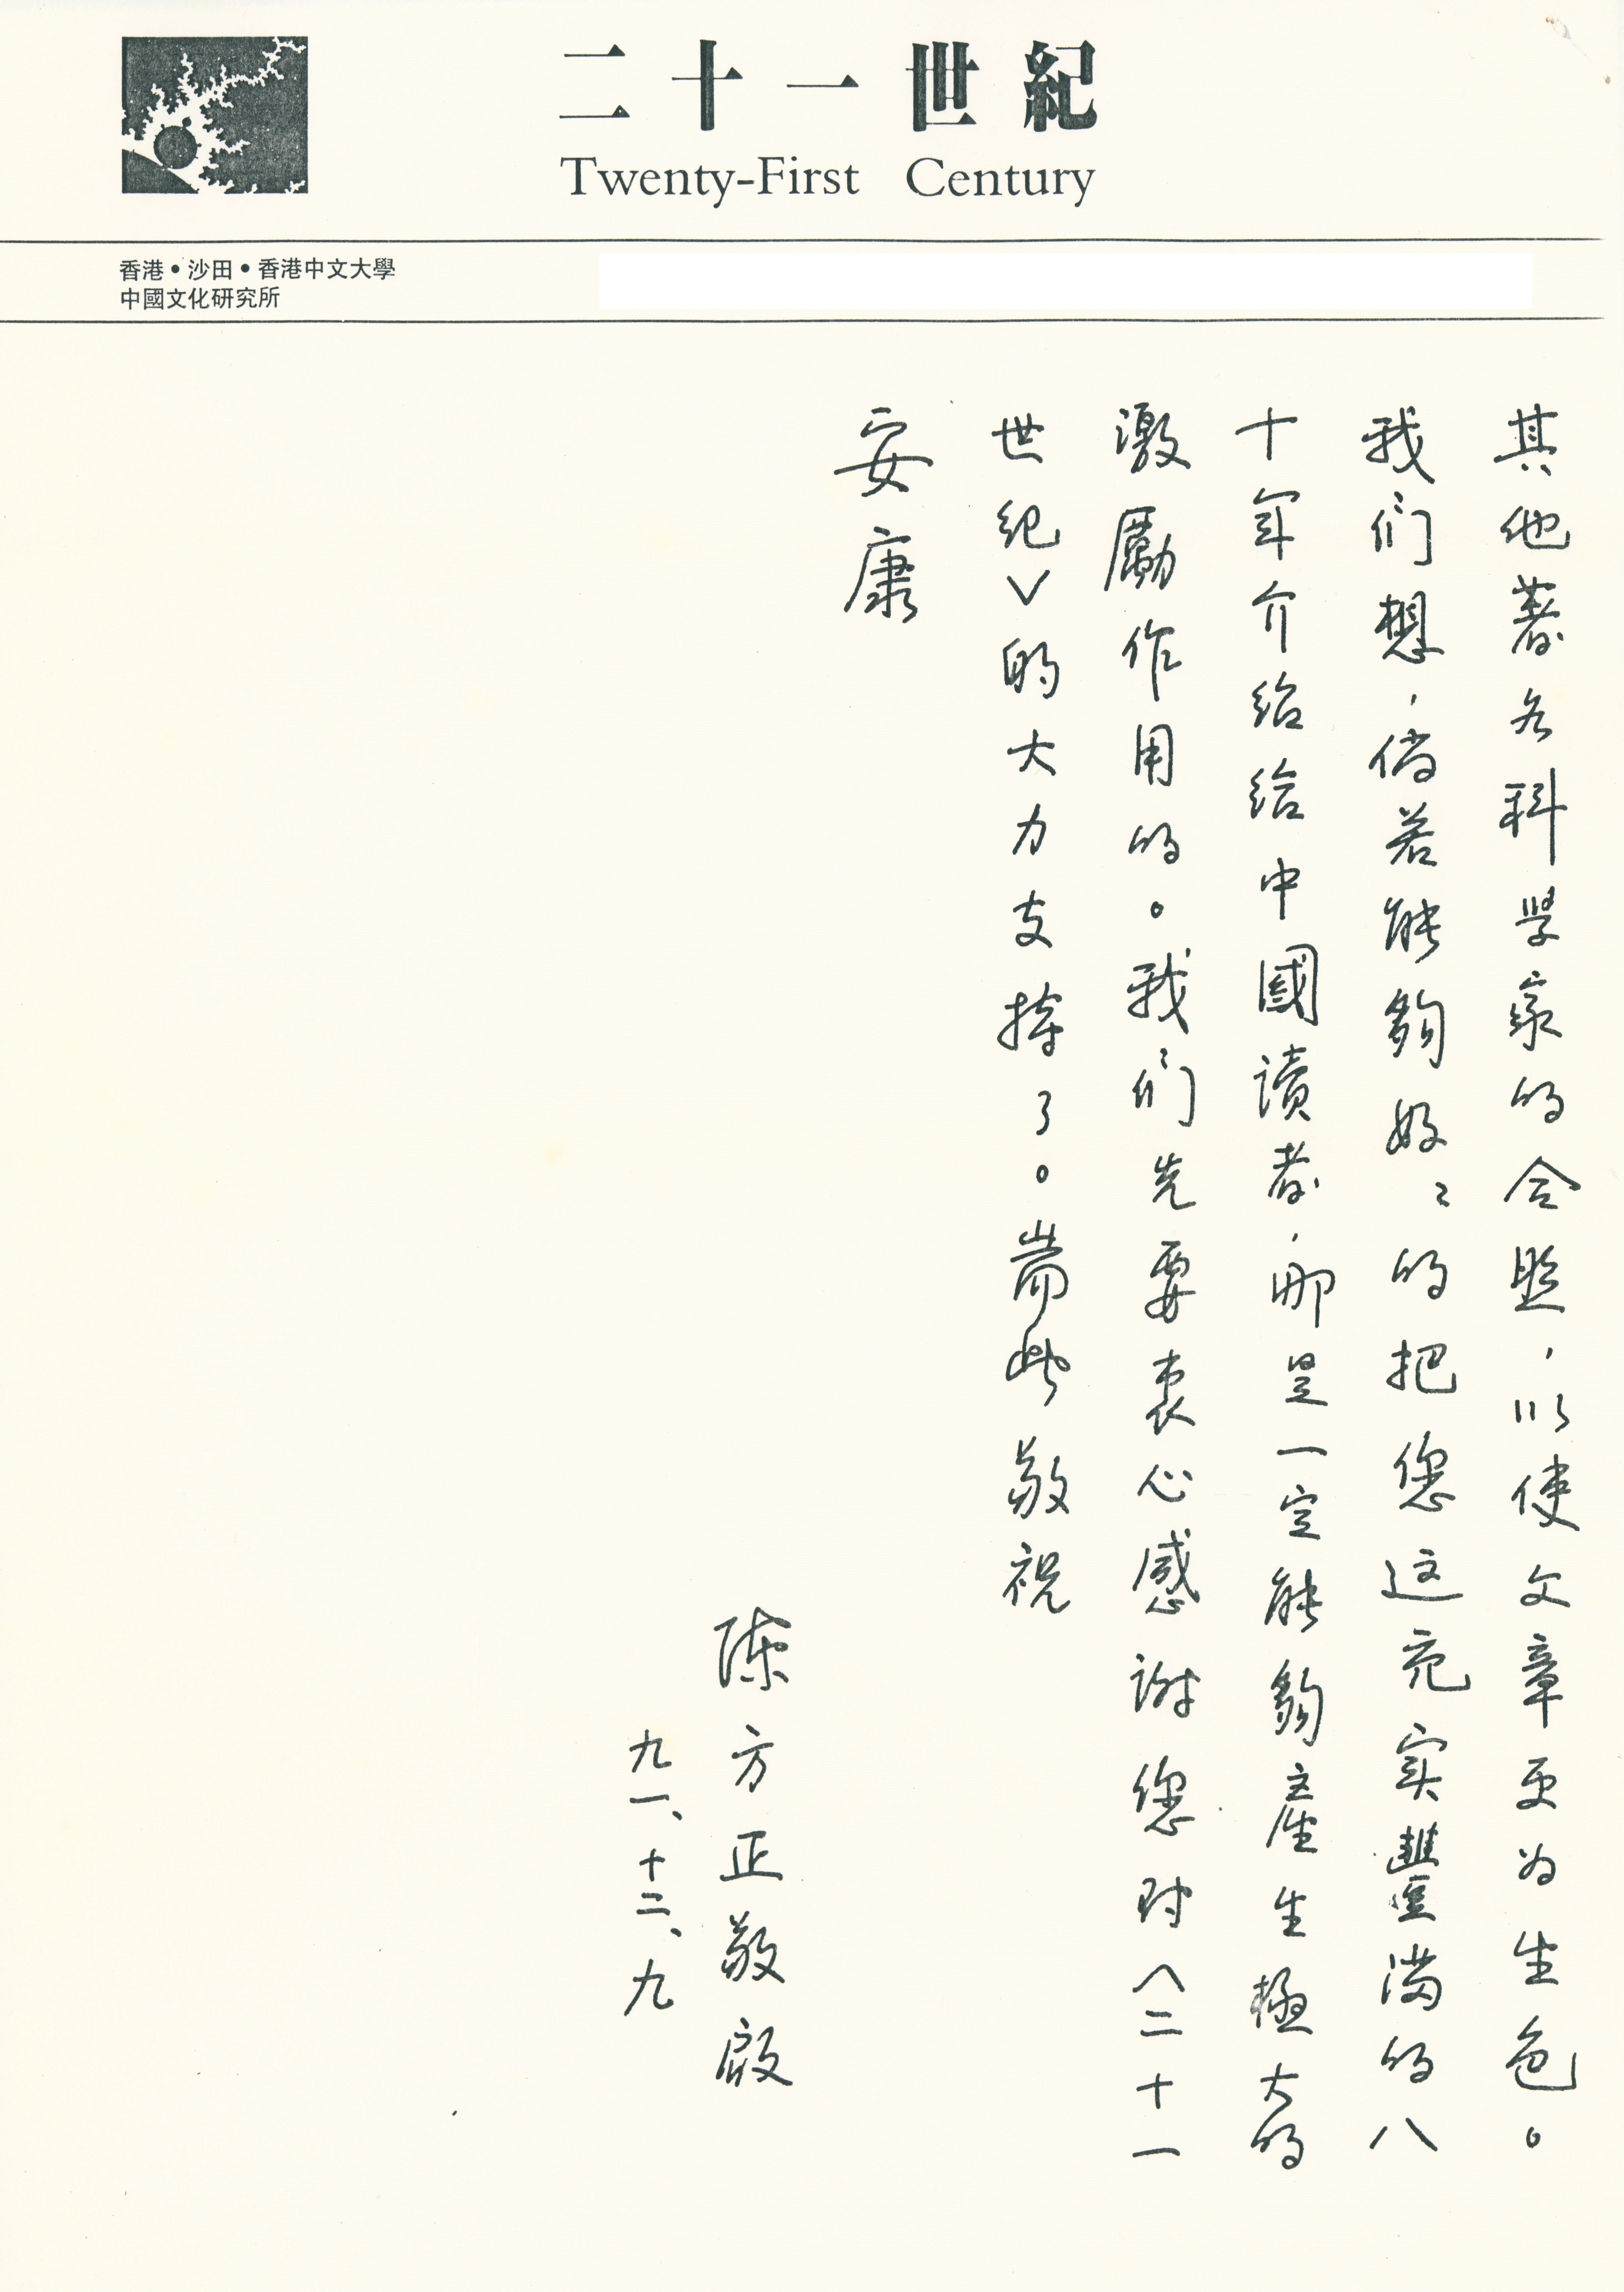 二十一世紀
Twenty-First Century
香港•沙田•香港中文大學
中國文化研究所
其他著名科學家的合照，以使文章更为生色。
我们想，倘若能夠好〻的把您这充实豐満的八
十年介绍给中國读者，那是一定能夠產生極大的
激勵作用的。我们先要衷心感谢您对〈二十一
世纪〉的大力支持了。耑此敬祝
安康
陈方正敬啟
九一、十二、九